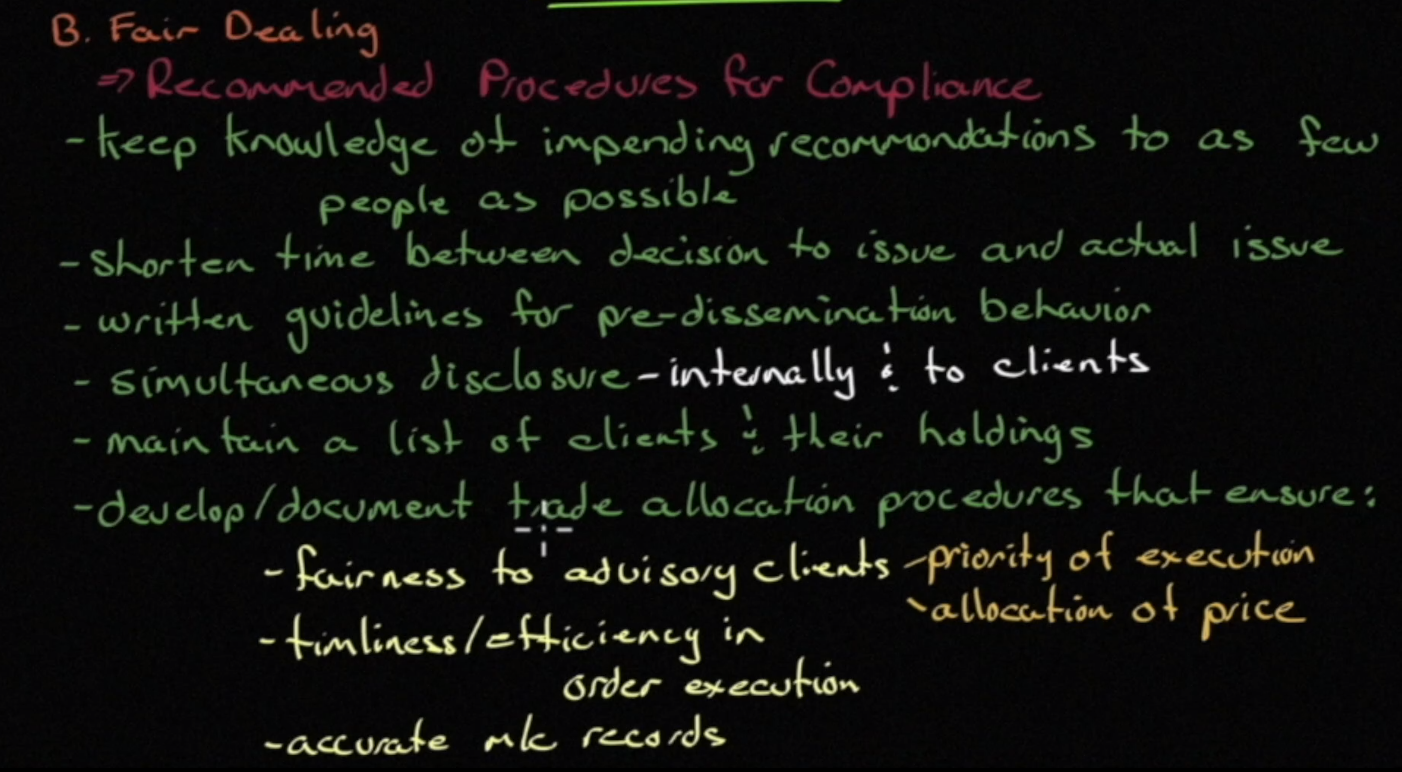 B. Fair Dealing
⇒ Recommended Procedures for Compliance
- keep knowledge of impending recommondations to as few
people as possible
- shorten time between decision to issue and actual issue
- written guidelines for pre-dissemination behavior
- simultaneous disclosure - internally & to clients
- maintain a list of clients & their holdings
- develop/document trade allocation procedures that ensure:
- fairness to advisory clients - priority of execution
- allocation of price
- timliness/efficiency in
order execution
- accurate records